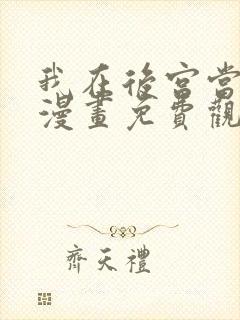 我在後宮當
漫畫免費觀
齊天禮